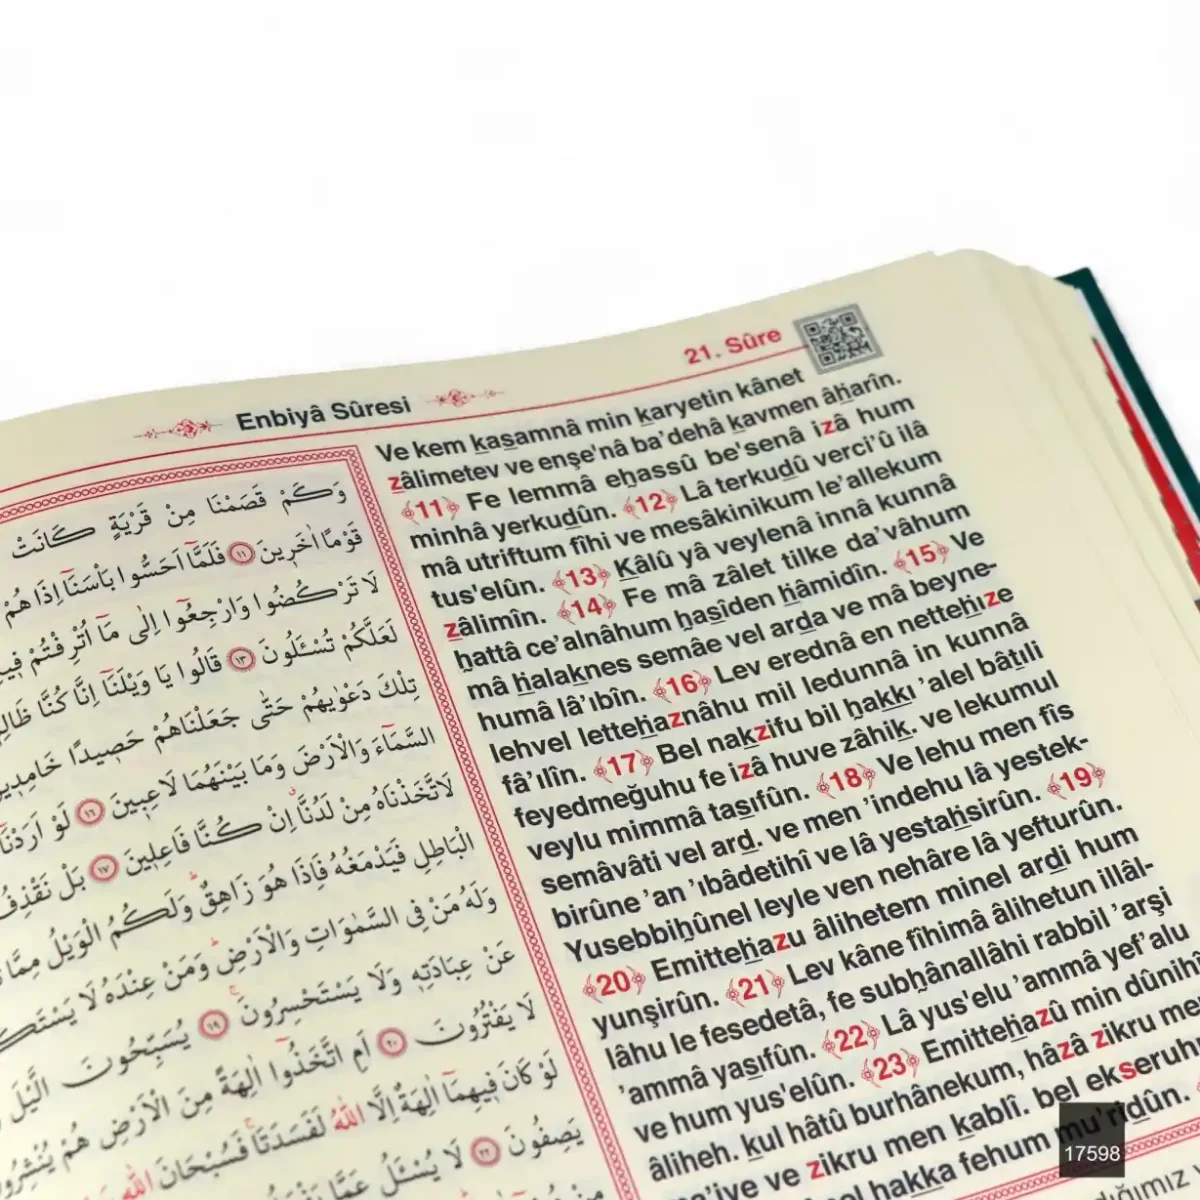 Enbiyâ Sûresi
21. Sûre
وَكَمْ قَصَمْنَا مِنْ قَرْيَةٍ كَانَتْ
قَوْمًا اٰخَرٖينَ ﴿١١﴾ فَلَمَّٓا اَحَسُّوا بَأْسَنَٓا اِذَا هُمْ
لَا تَرْكُضُوا وَارْجِعُٓوا اِلٰى مَٓا اُتْرِفْتُمْ
لَعَلَّكُمْ تُسْـَٔلُونَ ﴿١٣﴾ قَالُوا يَا وَيْلَنَٓا اِنَّا كُنَّا
تِلْكَ دَعْوٰيهُمْ حَتّٰى جَعَلْنَاهُمْ حَصٖيدًا
السَّمَٓاءَ وَالْاَرْضَ وَمَا بَيْنَهُمَا لَاعِبٖينَ ﴿١٦﴾ لَوْ اَرَدْنَٓا
لَاتَّخَذْنَاهُ مِنْ لَدُنَّٓا اِنْ كُنَّا فَاعِلٖينَ ﴿١٧﴾ بَلْ نَقْذِفُ
الْبَاطِلِ فَيَدْمَغُهُ فَاِذَا هُوَ زَاهِقٌ وَلَكُمُ الْوَيْلُ مِمَّا
وَلَهُ مَنْ فِي السَّمٰوَاتِ وَالْاَرْضِ وَمَنْ عِنْدَهُ لَا
عَنْ عِبَادَتِهٖ وَلَا يَسْتَحْسِرُونَ ﴿١٩﴾ يُسَبِّحُونَ الَّيْلَ
لَا يَفْتُرُونَ ﴿٢٠﴾ اَمِ اتَّخَذُٓوا اٰلِهَةً مِنَ الْاَرْضِ هُمْ
لَوْ كَانَ فٖيهِمَٓا اٰلِهَةٌ اِلَّا اللّٰهُ لَفَسَدَتَا فَسُبْحَانَ اللّٰهِ
يَصِفُونَ ﴿٢٢﴾ لَا يُسْـَٔلُ عَمَّا
Ve kem ḵas̱amnâ min ḵaryetin kânet
ẕâlimetev ve enşe'nâ ba'dehâ ḵavmen âẖarîn.
﴾11﴿ Fe lemmâ eẖassû be'senâ izâ hum
minhâ yerkuḏûn. ﴾12﴿ Lâ terkuḏû verci'û ilâ
mâ utriftum fîhi ve mesâkinikum le'allekum
tus'elûn. ﴾13﴿ Ḵâlû yâ veylenâ innâ kunnâ
ẕâlimîn. ﴾14﴿ Fe mâ zâlet tilke da'vâhum
ẖattâ ce'alnâhum ẖas̱îden ẖâmidîn. ﴾15﴿ Ve
mâ ẖalaḵnes semâe vel arḏa ve mâ beyne-
humâ lâ'ıbîn. ﴾16﴿ Lev erednâ en netteẖıze
lehvel letteẖaznâhu mil ledunnâ in kunnâ
fâ'ılîn. ﴾17﴿ Bel naḵzifu bil ẖaḵḵı 'alel bâṯıli
feyedmeğuhu fe izâ huve zâhiḵ. ve lekumul
veylu mimmâ tas̱ifûn. ﴾18﴿ Ve lehu men fîs
semâvâti vel arḏ. ve men 'indehu lâ yestek-
birûne 'an 'ıbâdetihî ve lâ yestaẖsirûn. ﴾19﴿
Yusebbiẖûnel leyle ven nehâre lâ yefturûn.
﴾20﴿ Emitteẖazu âlihetem minel arḏi hum
yunşirûn. ﴾21﴿ Lev kâne fîhimâ âlihetun illâl-
lâhu le fesedetâ, fe subẖânallâhi rabbil 'arşi
'ammâ yas̱ıfûn. ﴾22﴿ Lâ yus'elu 'ammâ yef'alu
ve hum yus'elûn. ﴾23﴿ Emitteẖazû min dûnihî
âliheh. ḵul hâtû burhânekum, hâzâ zikru me
ma'iye ve zikru men ḵablî. bel ekseruh
ẖaḵḵa fehum mu'riḏûn.
17598